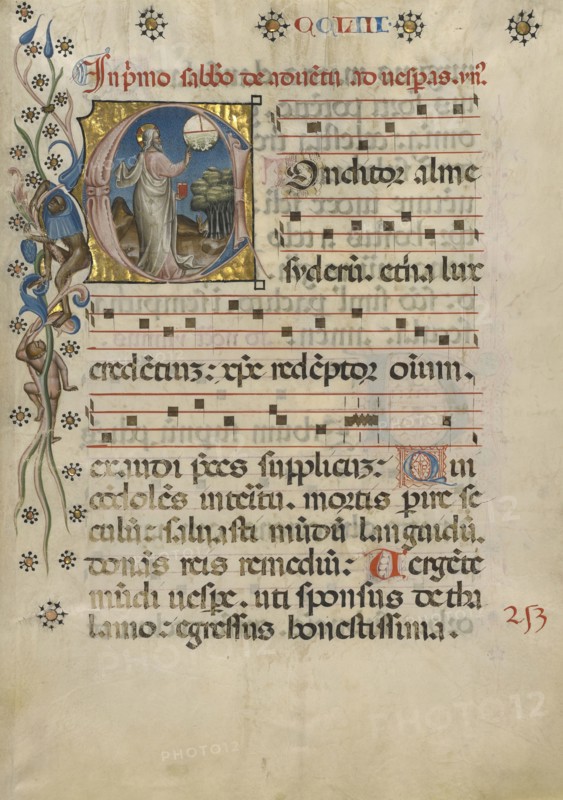 CCLIII
In p̄mo sabb̄o de aduētu ad uesp̄as. ẏm̄.
Conditor alme
syderū. et̄na lux
credētiuȝ: xp̄e redēptor oīum.
exaudi p̄ces suppliciuȝ: Qui
cōdolēs interitu. mortis perire se
culū: saluasti mūdū languidū.
donās reis remediū: Uergēte
mūdi uesp̄e. uti sponsus de tha
lamo. egressus honestissima.
253
PHOTO12
PHOTO12
PHOTO12